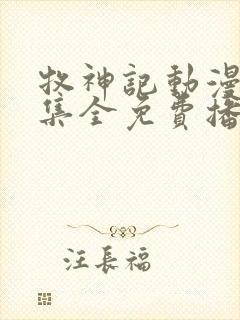 牧神記動漫
集全免費播
汪長福